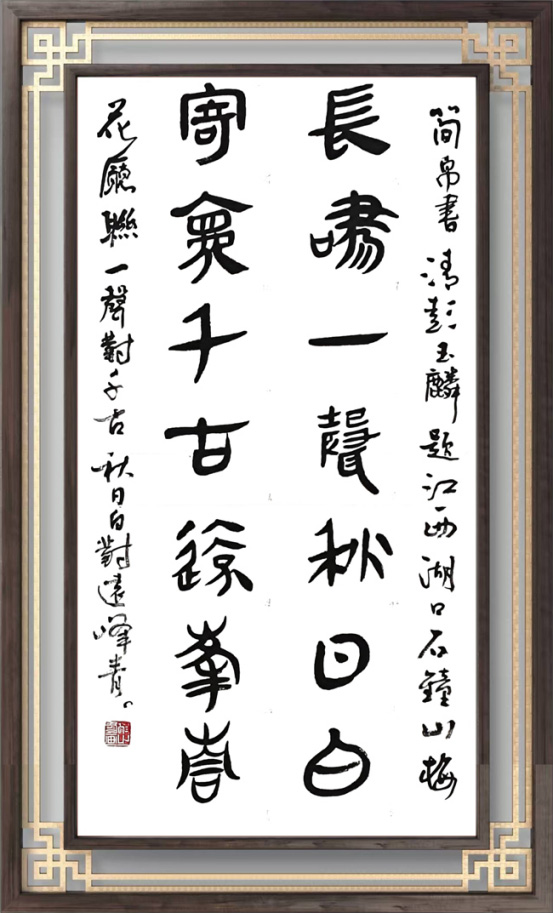 簡帛書 清彭玉麟題江西湖口石鐘山梅
長嘯一聲秋日白
寄褱千古遠峯青
花廳聯一聲對千古秋日白對遠峰青。